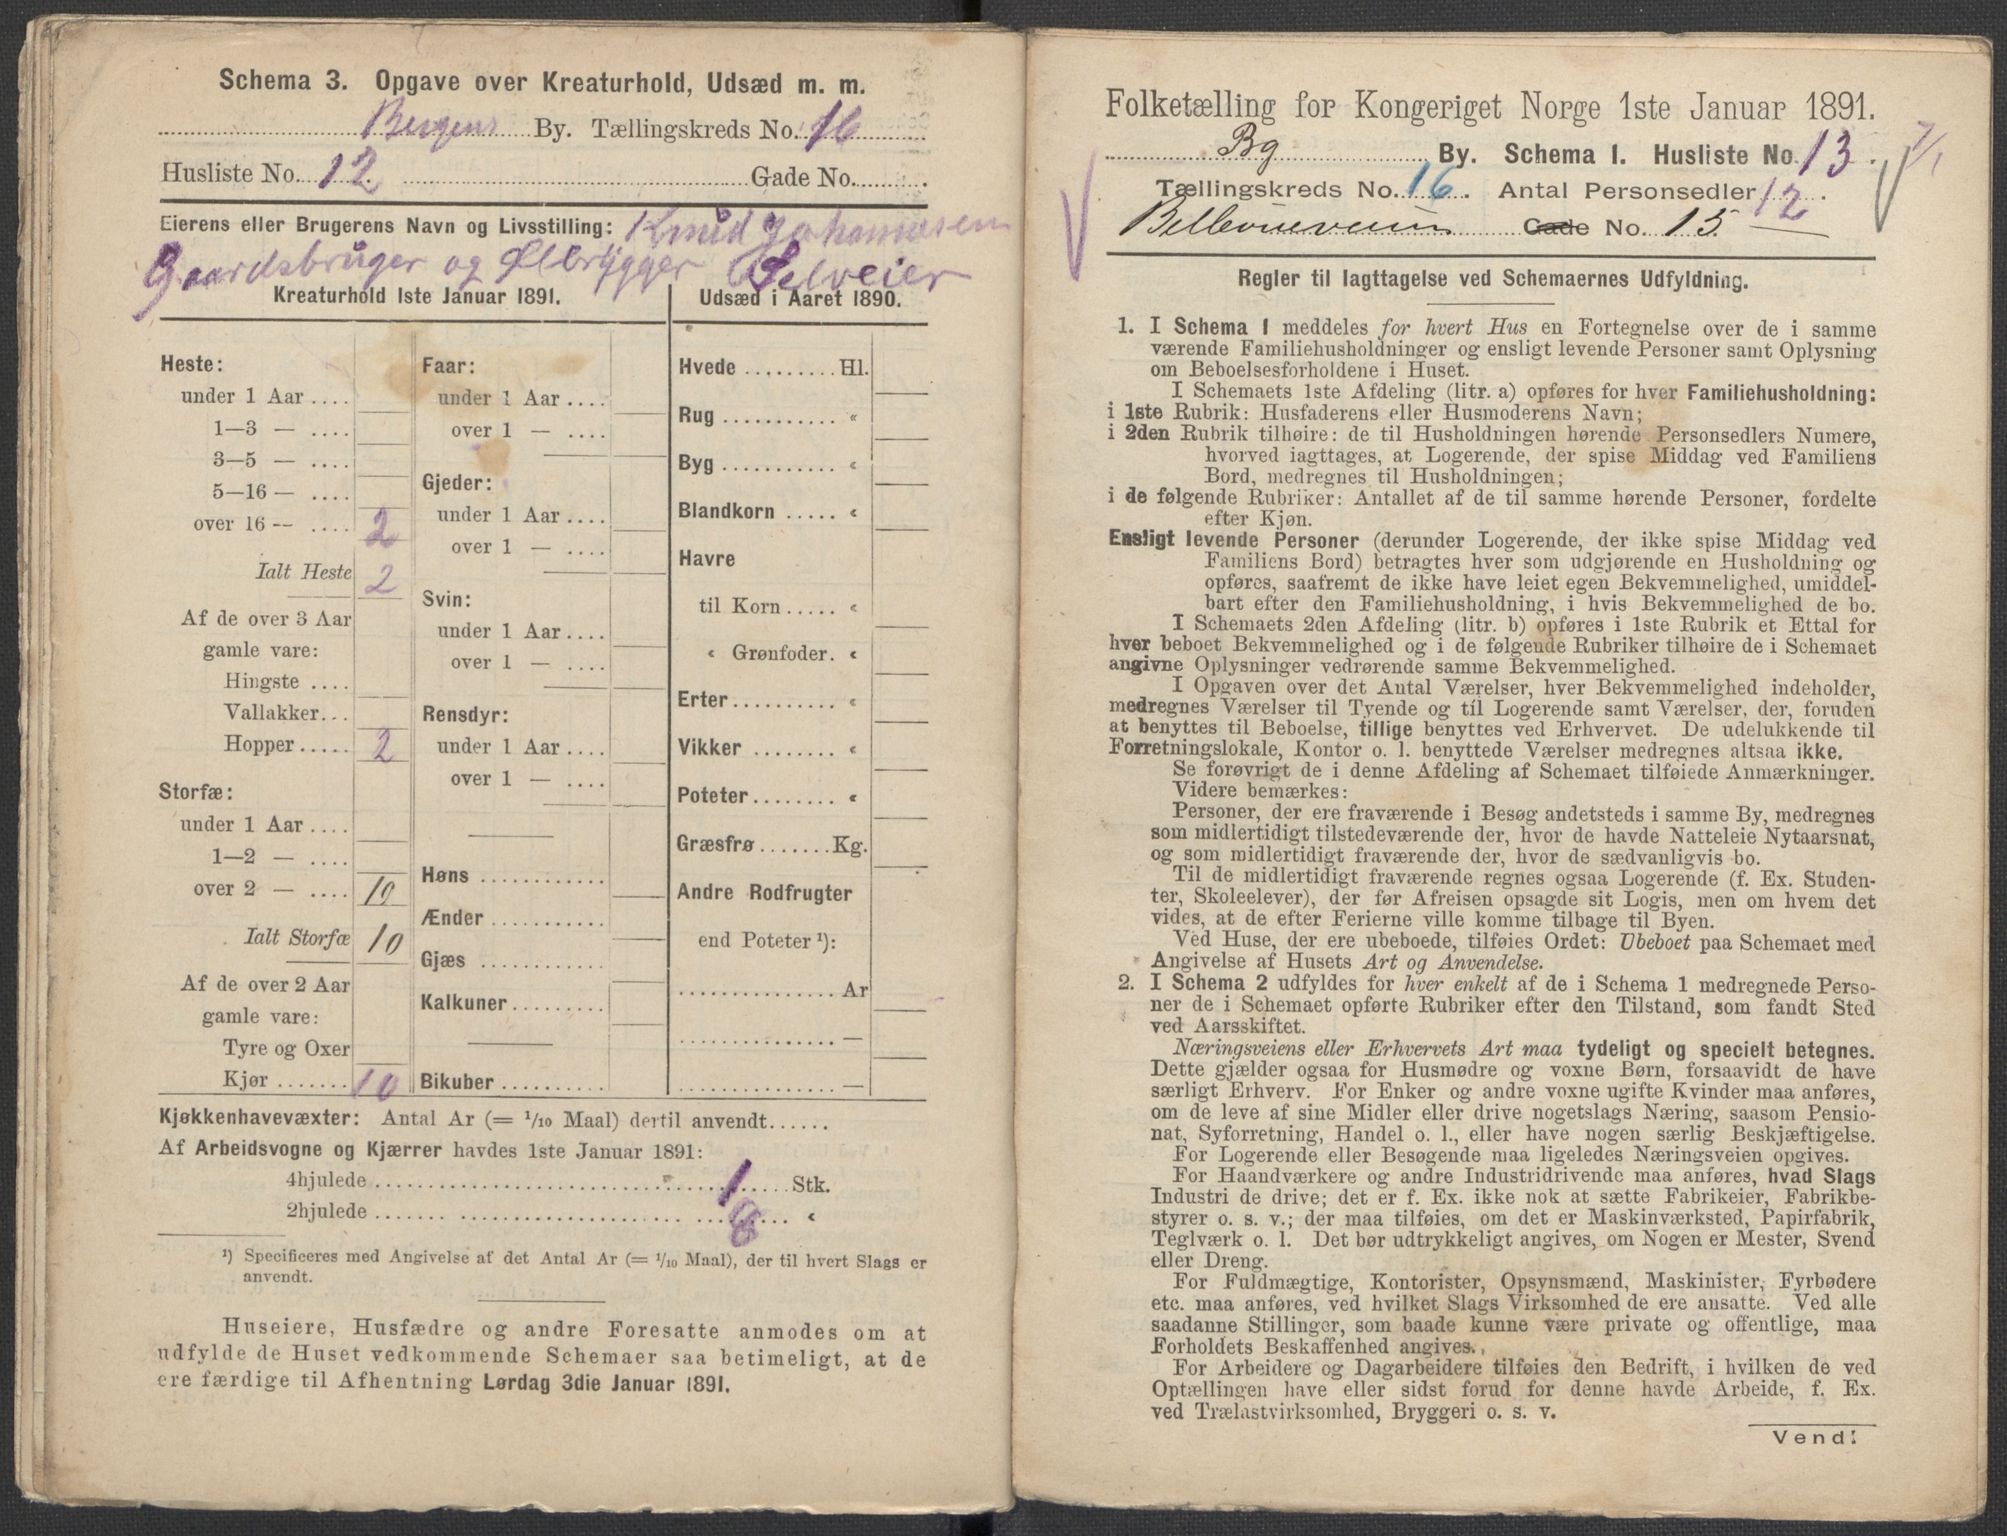 Schema 3. Opgave over Kreaturhold, Udsæd m. m.
Bergens By. Tællingskreds No. 16
Husliste No. 12. Gade No.
Eierens eller Brugerens Navn og Livsstilling: Knud Johannesen
Gaardsbruger og Ølbrygger Selveier
Kreaturhold 1ste Januar 1891.
Heste:
under 1 Aar ....
1—3 — ....
3—5 — ....
5—16 — ....
over 16 — .... 2
Ialt Heste 2
Af de over 3 Aar
gamle vare:
Hingste ....
Vallakker...
Hopper..... 2
Storfæ:
under 1 Aar ....
1—2 — ....
over 2 — .... 10
Ialt Storfæ 10
Af de over 2 Aar
gamle vare:
Tyre og Oxer
Kjør ....... 10
Faar:
under 1 Aar ....
over 1 — ....
Gjeder:
under 1 Aar ....
over 1 — ....
Svin:
under 1 Aar ....
over 1 — ....
Rensdyr:
under 1 Aar ....
over 1 — ....
Høns ............
Ænder ...........
Gjæs ............
Kalkuner.........
Bikuber ..........
Udsæd i Aaret 1890.
Hvede ......... Hl.
Rug ........... «
Byg ........... «
Blandkorn ..... «
Havre
til Korn ..... «
« Grønfoder. «
Erter......... «
Vikker ........ «
Poteter........ «
Græsfrø....... Kg.
Andre Rodfrugter
end Poteter ¹):
............... Ar
............... —
............... —
Kjøkkenhavevæxter: Antal Ar (= 1/10 Maal) dertil anvendt......
Af Arbeidsvogne og Kjærrer havdes 1ste Januar 1891:
4hjulede .......... 1 ..... Stk.
2hjulede .......... 8 ..... «
¹) Specificeres med Angivelse af det Antal Ar (= 1/10 Maal), der til hvert Slags er
anvendt.
Huseiere, Husfædre og andre Foresatte anmodes om at
udfylde de Huset vedkommende Schemaer saa betimeligt, at de
ere færdige til Afhentning Lørdag 3die Januar 1891.
Folketælling for Kongeriget Norge 1ste Januar 1891.
Bg By. Schema 1. Husliste No. 13. 7/1
Tællingskreds No. 16. Antal Personsedler 12.
Bellevueveien Gade No. 15
Regler til Iagttagelse ved Schemaernes Udfyldning.
1. I Schema 1 meddeles for hvert Hus en Fortegnelse over de i samme
værende Familiehusholdninger og ensligt levende Personer samt Oplysning
om Beboelsesforholdene i Huset.
I Schemaets 1ste Afdeling (litr. a) opføres for hver Familiehusholdning:
i 1ste Rubrik: Husfaderens eller Husmoderens Navn;
i 2den Rubrik tilhøire: de til Husholdningen hørende Personsedlers Numere,
hvorved iagttages, at Logerende, der spise Middag ved Familiens
Bord, medregnes til Husholdningen;
i de følgende Rubriker: Antallet af de til samme hørende Personer, fordelte
efter Kjøn.
Ensligt levende Personer (derunder Logerende, der ikke spise Middag ved
Familiens Bord) betragtes hver som udgjørende en Husholdning og
opføres, saafremt de ikke have leiet egen Bekvemmelighed, umiddel-
bart efter den Familiehusholdning, i hvis Bekvemmelighed de bo.
I Schemaets 2den Afdeling (litr. b) opføres i 1ste Rubrik et Ettal for
hver beboet Bekvemmelighed og i de følgende Rubriker tilhøire de i Schemaet
angivne Oplysninger vedrørende samme Bekvemmelighed.
I Opgaven over det Antal Værelser, hver Bekvemmelighed indeholder,
medregnes Værelser til Tyende og til Logerende samt Værelser, der, foruden
at benyttes til Beboelse, tillige benyttes ved Erhvervet. De udelukkende til
Forretningslokale, Kontor o. l. benyttede Værelser medregnes altsaa ikke.
Se forøvrigt de i denne Afdeling af Schemaet tilføiede Anmærkninger.
Videre bemærkes:
Personer, der ere fraværende i Besøg andetsteds i samme By, medregnes
som midlertidigt tilstedeværende der, hvor de havde Natteleie Nytaarsnat,
og som midlertidigt fraværende der, hvor de sædvanligvis bo.
Til de midlertidigt fraværende regnes ogsaa Logerende (f. Ex. Studen-
ter, Skoleelever), der før Afreisen opsagde sit Logis, men om hvem det
vides, at de efter Ferierne ville komme tilbage til Byen.
Ved Huse, der ere ubeboede, tilføies Ordet: Ubeboet paa Schemaet med
Angivelse af Husets Art og Anvendelse.
2. I Schema 2 udfyldes for hver enkelt af de i Schema 1 medregnede Perso-
ner de i Schemaet opførte Rubriker efter den Tilstand, som fandt Sted
ved Aarsskiftet.
Næringsveiens eller Erhvervets Art maa tydeligt og specielt betegnes.
Dette gjælder ogsaa for Husmødre og voxne Børn, forsaavidt de have
særligt Erhverv. For Enker og andre voxne ugifte Kvinder maa anføres,
om de leve af sine Midler eller drive nogetslags Næring, saasom Pensio-
nat, Syforretning, Handel o. l., eller have nogen særlig Beskjæftigelse.
For Logerende eller Besøgende maa ligeledes Næringsveien opgives.
For Haandværkere og andre Industridrivende maa anføres, hvad Slags
Industri de drive; det er f. Ex. ikke nok at sætte Fabrikeier, Fabrikbe-
styrer o. s. v.; der maa tilføies, om det er Maskinværksted, Papirfabrik,
Teglværk o. l. Det bør udtrykkeligt angives, om Nogen er Mester, Svend
eller Dreng.
For Fuldmægtige, Kontorister, Opsynsmænd, Maskinister, Fyrbødere
etc. maa anføres, ved hvilket Slags Virksomhed de ere ansatte. Ved alle
saadanne Stillinger, som baade kunne være private og offentlige, maa
Forholdets Beskaffenhed angives.
For Arbeidere og Dagarbeidere tilføies den Bedrift, i hvilken de ved
Optællingen have eller sidst forud for denne havde Arbeide, f. Ex.
ved Trælastvirksomhed, Bryggeri o. s. v.
Vend!